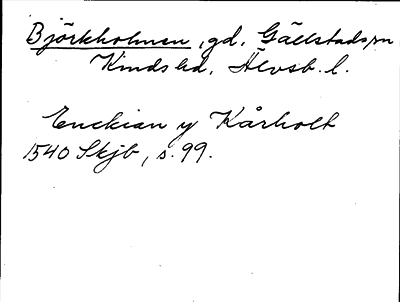 Björkholmen, gd, Gällstads sn
Kinds hd, Älvsb. l.
Enckian y Kårholt
1540 Skjb, s. 99.